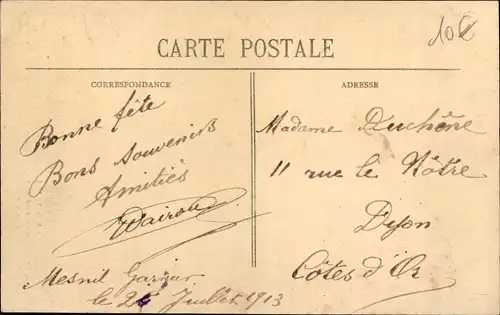 10€
CARTE POSTALE
CORRESPONDANCE
ADRESSE
Bonne fête
Bons souvenirs
Amitiés
Mesnil Garnier
le Juillet 1913
Madame Duchêne
11 rue le Nôtre
Dijon
Côtes d'Or